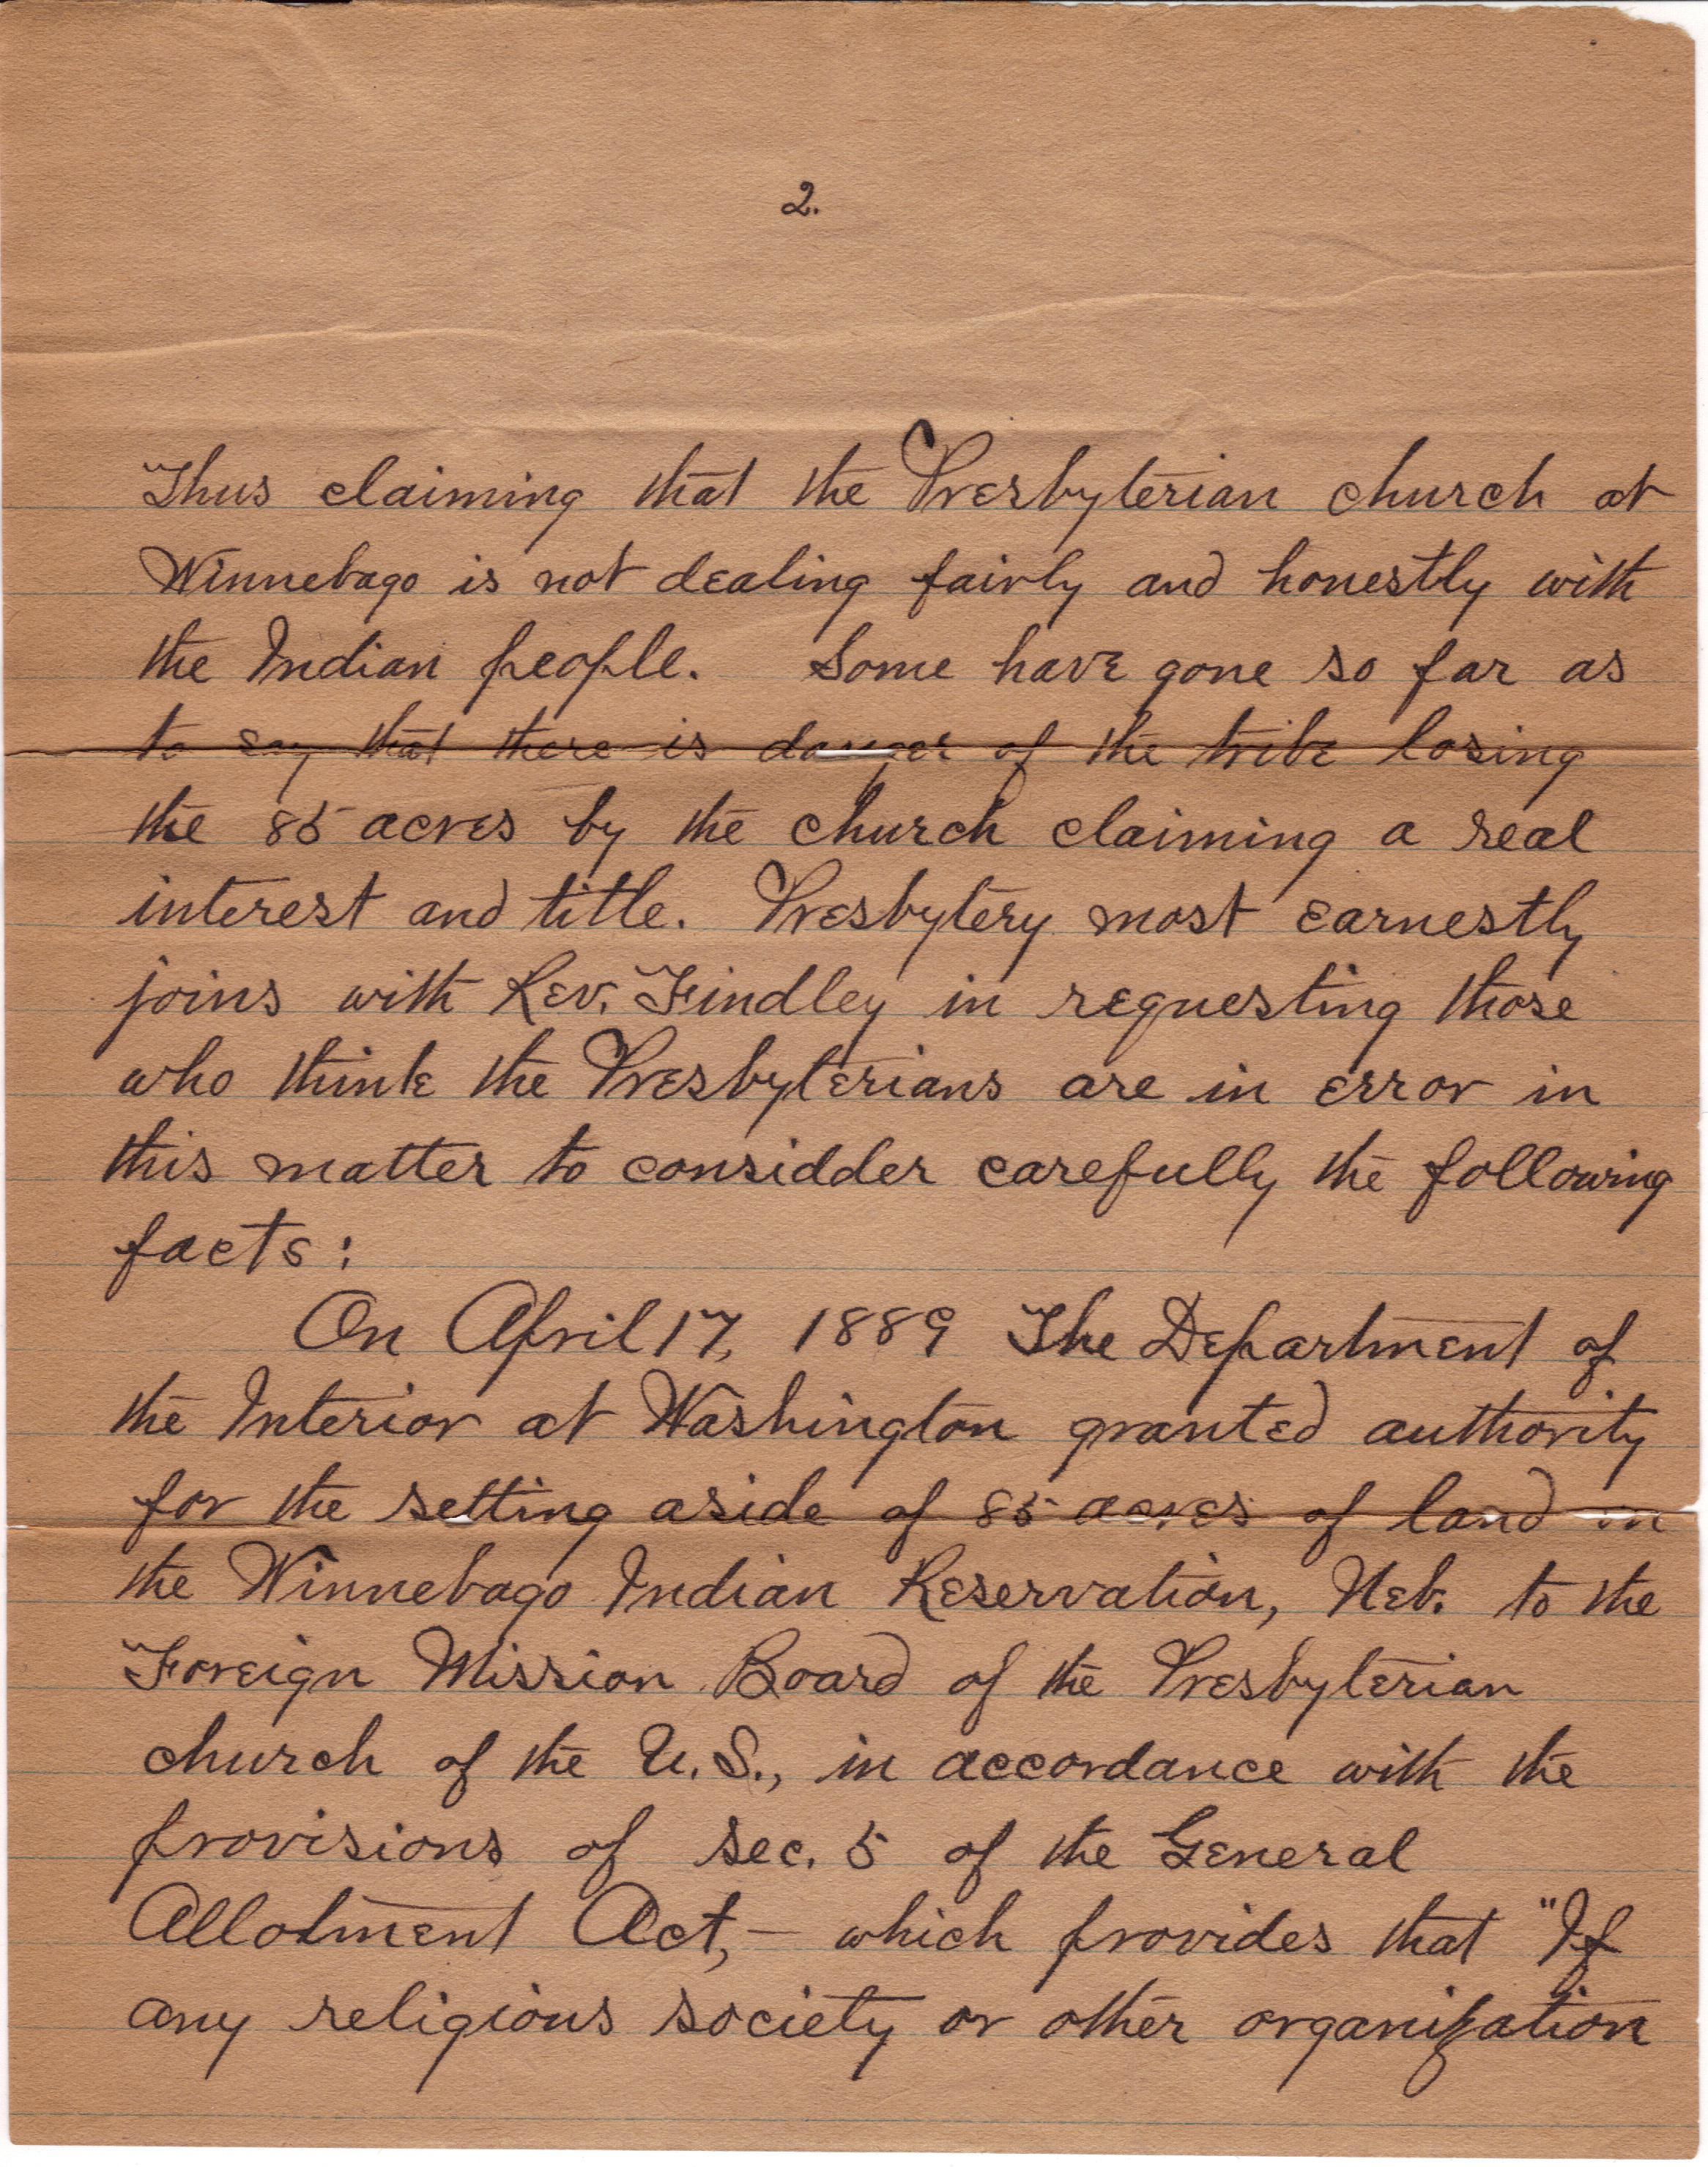 2.
Thus claiming that the Presbyterian church at
Winnebago is not dealing fairly and honestly with
the Indian people. Some have gone so far as
to say that there is danger of the tribe losing
the 85 acres by the church claiming a real
interest and title. Presbytery most earnestly
joins with Rev. Findley in requesting those
who think the Presbyterians are in error in
this matter to considder carefully the following
facts:
On April 17, 1889 The Department of
the Interior at Washington granted authority
for the setting aside of 85 acres of land in
the Winnebago Indian Reservation, Neb. to the
Foreign Mission Board of the Presbyterian
church of the U.S., in accordance with the
provisions of sec. 5 of the General
Allotment Act,- which provides that "If
any religious society or other organization